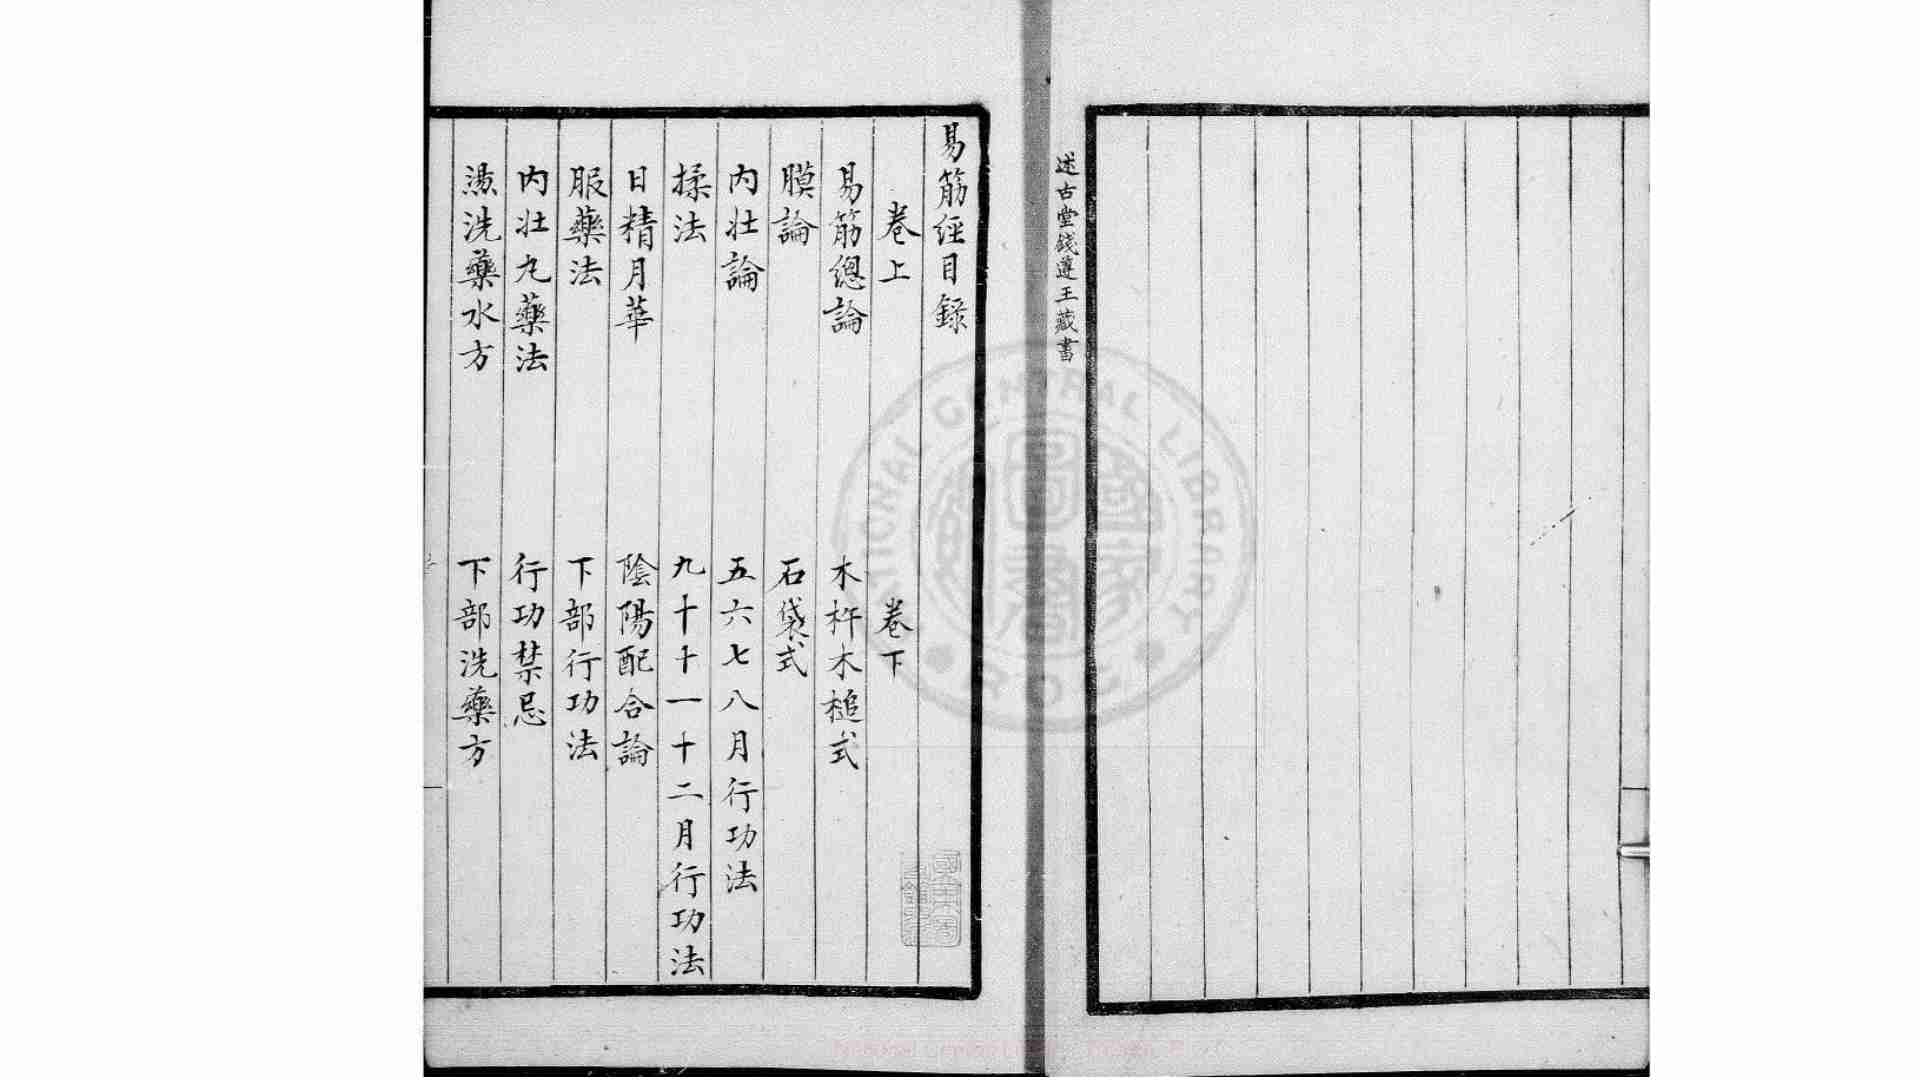 述古堂錢遵王藏書
易筋經目錄
卷上
卷下
易筋總論
木杵木槌式
膜論
石袋式
內壯論
五六七八月行功法
揉法
九十十一十二月行功法
日精月華
陰陽配合論
服藥法
下部行功法
內壯丸藥法
行功禁忌
湯洗藥水方
下部洗藥方
NATIONAL CENTRAL LIBRARY
R.O.C.
國家圖書